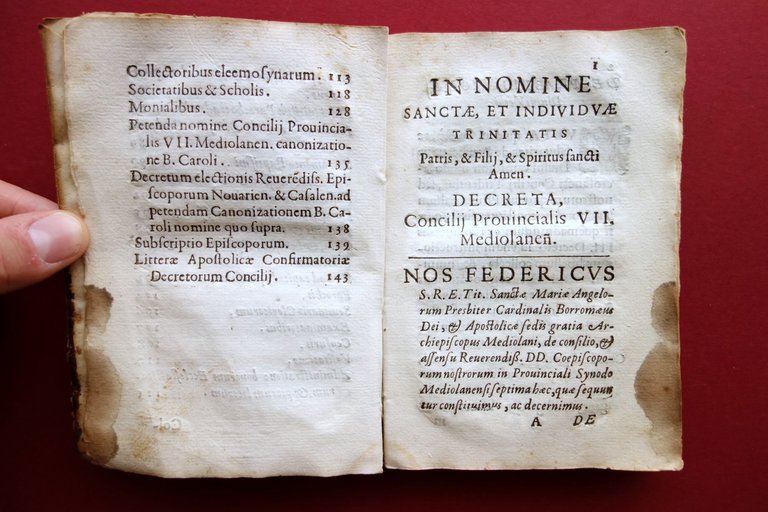 Collectoribus eleemosynarum. 113
Societatibus & Scholis. 118
Monialibus. 128
Petenda nomine Concilij Prouincia-
lis VII. Mediolanen. canonizatio-
ne B. Caroli. . 135
Decretum electionis Reuerēdiss. Epi-
scoporum Nouarien. & Casalen. ad
petendam Canonizationem B. Ca-
roli nomine quo supra. 138
Subscriptio Episcoporum. 139
Litteræ Apostolicæ Confirmatoriæ
Decretorum Concilij. 143
1
IN NOMINE
SANCTÆ, ET INDIVIDVÆ
TRINITATIS
Patris, & Filij, & Spiritus sancti
Amen.
DECRETA,
Concilij Prouincialis VII.
Mediolaneñ.
NOS FEDERICVS
S. R. E. Tit. Sanctæ Mariæ Angelo-
rum Presbiter Cardinalis Borromæus
Dei, & Apostolicæ sedis gratia Ar-
chiepiscopus Mediolani, de consilio, &
assensu Reuerendiss. DD. Coepiscopo-
rum nostrorum in Prouinciali Synodo
Mediolanensi septima hæc, quæ sequun
tur constituimus, ac decernimus.
A DE